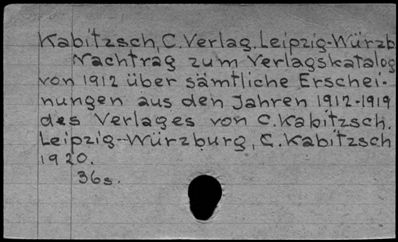 Kabitzsch, C. Verlag. Leipzig-Würzb
Nachtrag zum Verlagskatalog
von 1912 über sämtliche Erschei-
nungen aus den Jahren 1912-1919
des Verlages von C. Kabitzsch.
Leipzig-Würzburg, C. Kabitzsch
1920.
36s.